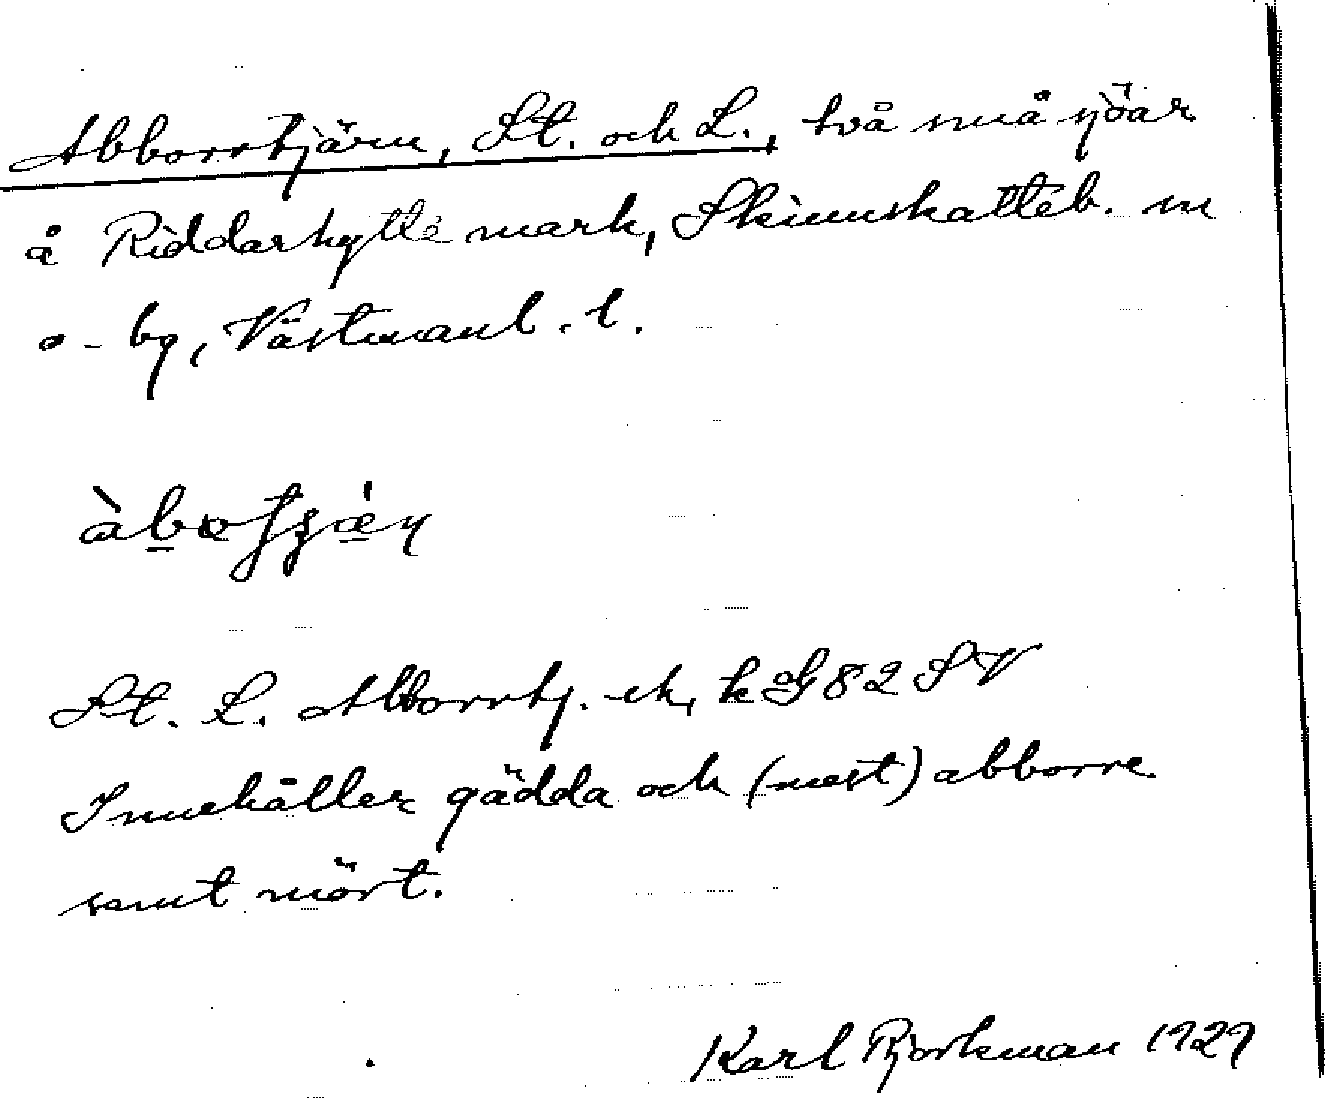 Abborrtjärn, St. och L., två små sjöar
å Riddarhytte mark, Skinnskatteb. sn
o - bg, Västmanl. l.
St. L. Abborrtj. ek, k G 82 SV
Innehåller gädda och (mest) abborre
samt mört.
Karl Björkman 1929